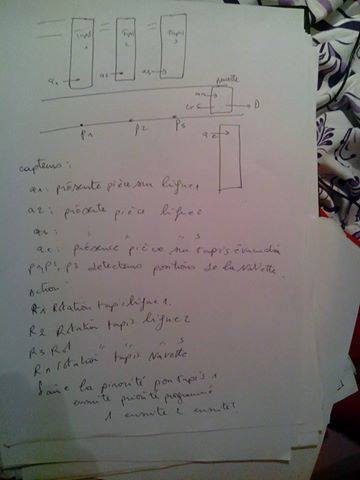 Tapis 1
Tapis 2
Tapis 3
a1
a2
a3
navette
an
G
D
ae
p1
p2
p3
capteurs :
a1 : présente pièce sur ligne 1
a2 : présente pièce ligne 2
a3 : " " " 3
ae : présence pièce sur tapis
p1, p2, p3 detecteurs positions de la navette.
Action
R1 Rotation tapis ligne 1.
R2 Rotation tapis ligne 2
R3 Rot " " 3
Rn rotation tapis navette
la priorité pour tapis 1
ensuite priorité programmé
1 ensuite 2 ensuite 3